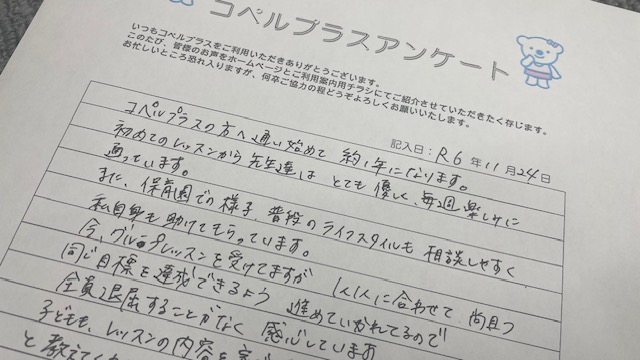 コペルプラスアンケート
いつもコペルプラスをご利用いただきありがとうございます。
このたび、皆様のお声をホームページとご利用案内用チラシにてご紹介させていただきたく存じます。
お忙しいところ恐れ入りますが、何卒ご協力の程どうぞよろしくお願いいたします。
記入日：R6年11月24日
コペルプラスの方へ通い始めて 約1年になります。
初めてのレッスンから先生達は とても優しく、毎週楽しげに
通っています。
また、保育園での様子、普段のライフスタイルも 相談しやすく
私自身も助けてもらっています。
今、グループレッスンを受けてますが 1人1人に合わせて、尚且つ
同じ目標を達成できるよう 進めていかれてるので
全員退屈することがなく 感心しています
子どもも、レッスンの内容を
と教えてく